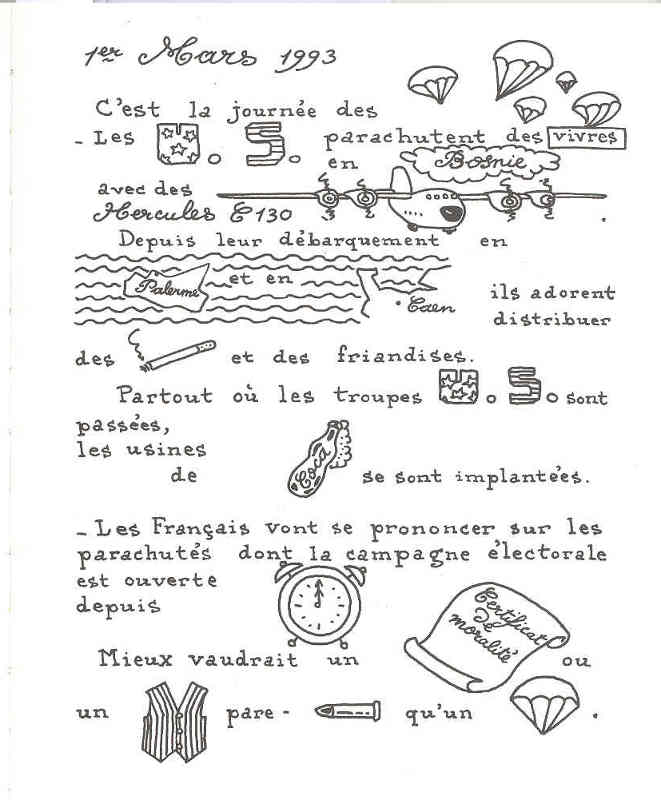 1er Mars 1993
C'est la journée des
- Les U. S. parachutent des vivres
en Bosnie
avec des
Hercules C130 .
Depuis leur débarquement en
Palerme et en
Caen ils adorent
distribuer
des et des friandises.
Partout où les troupes U. S. sont
passées,
les usines
de Coca se sont implantées.
- Les Français vont se prononcer sur les
parachutés dont la campagne électorale
est ouverte
depuis
Certificat
de
moralité
Mieux vaudrait un ou
un pare- qu'un .